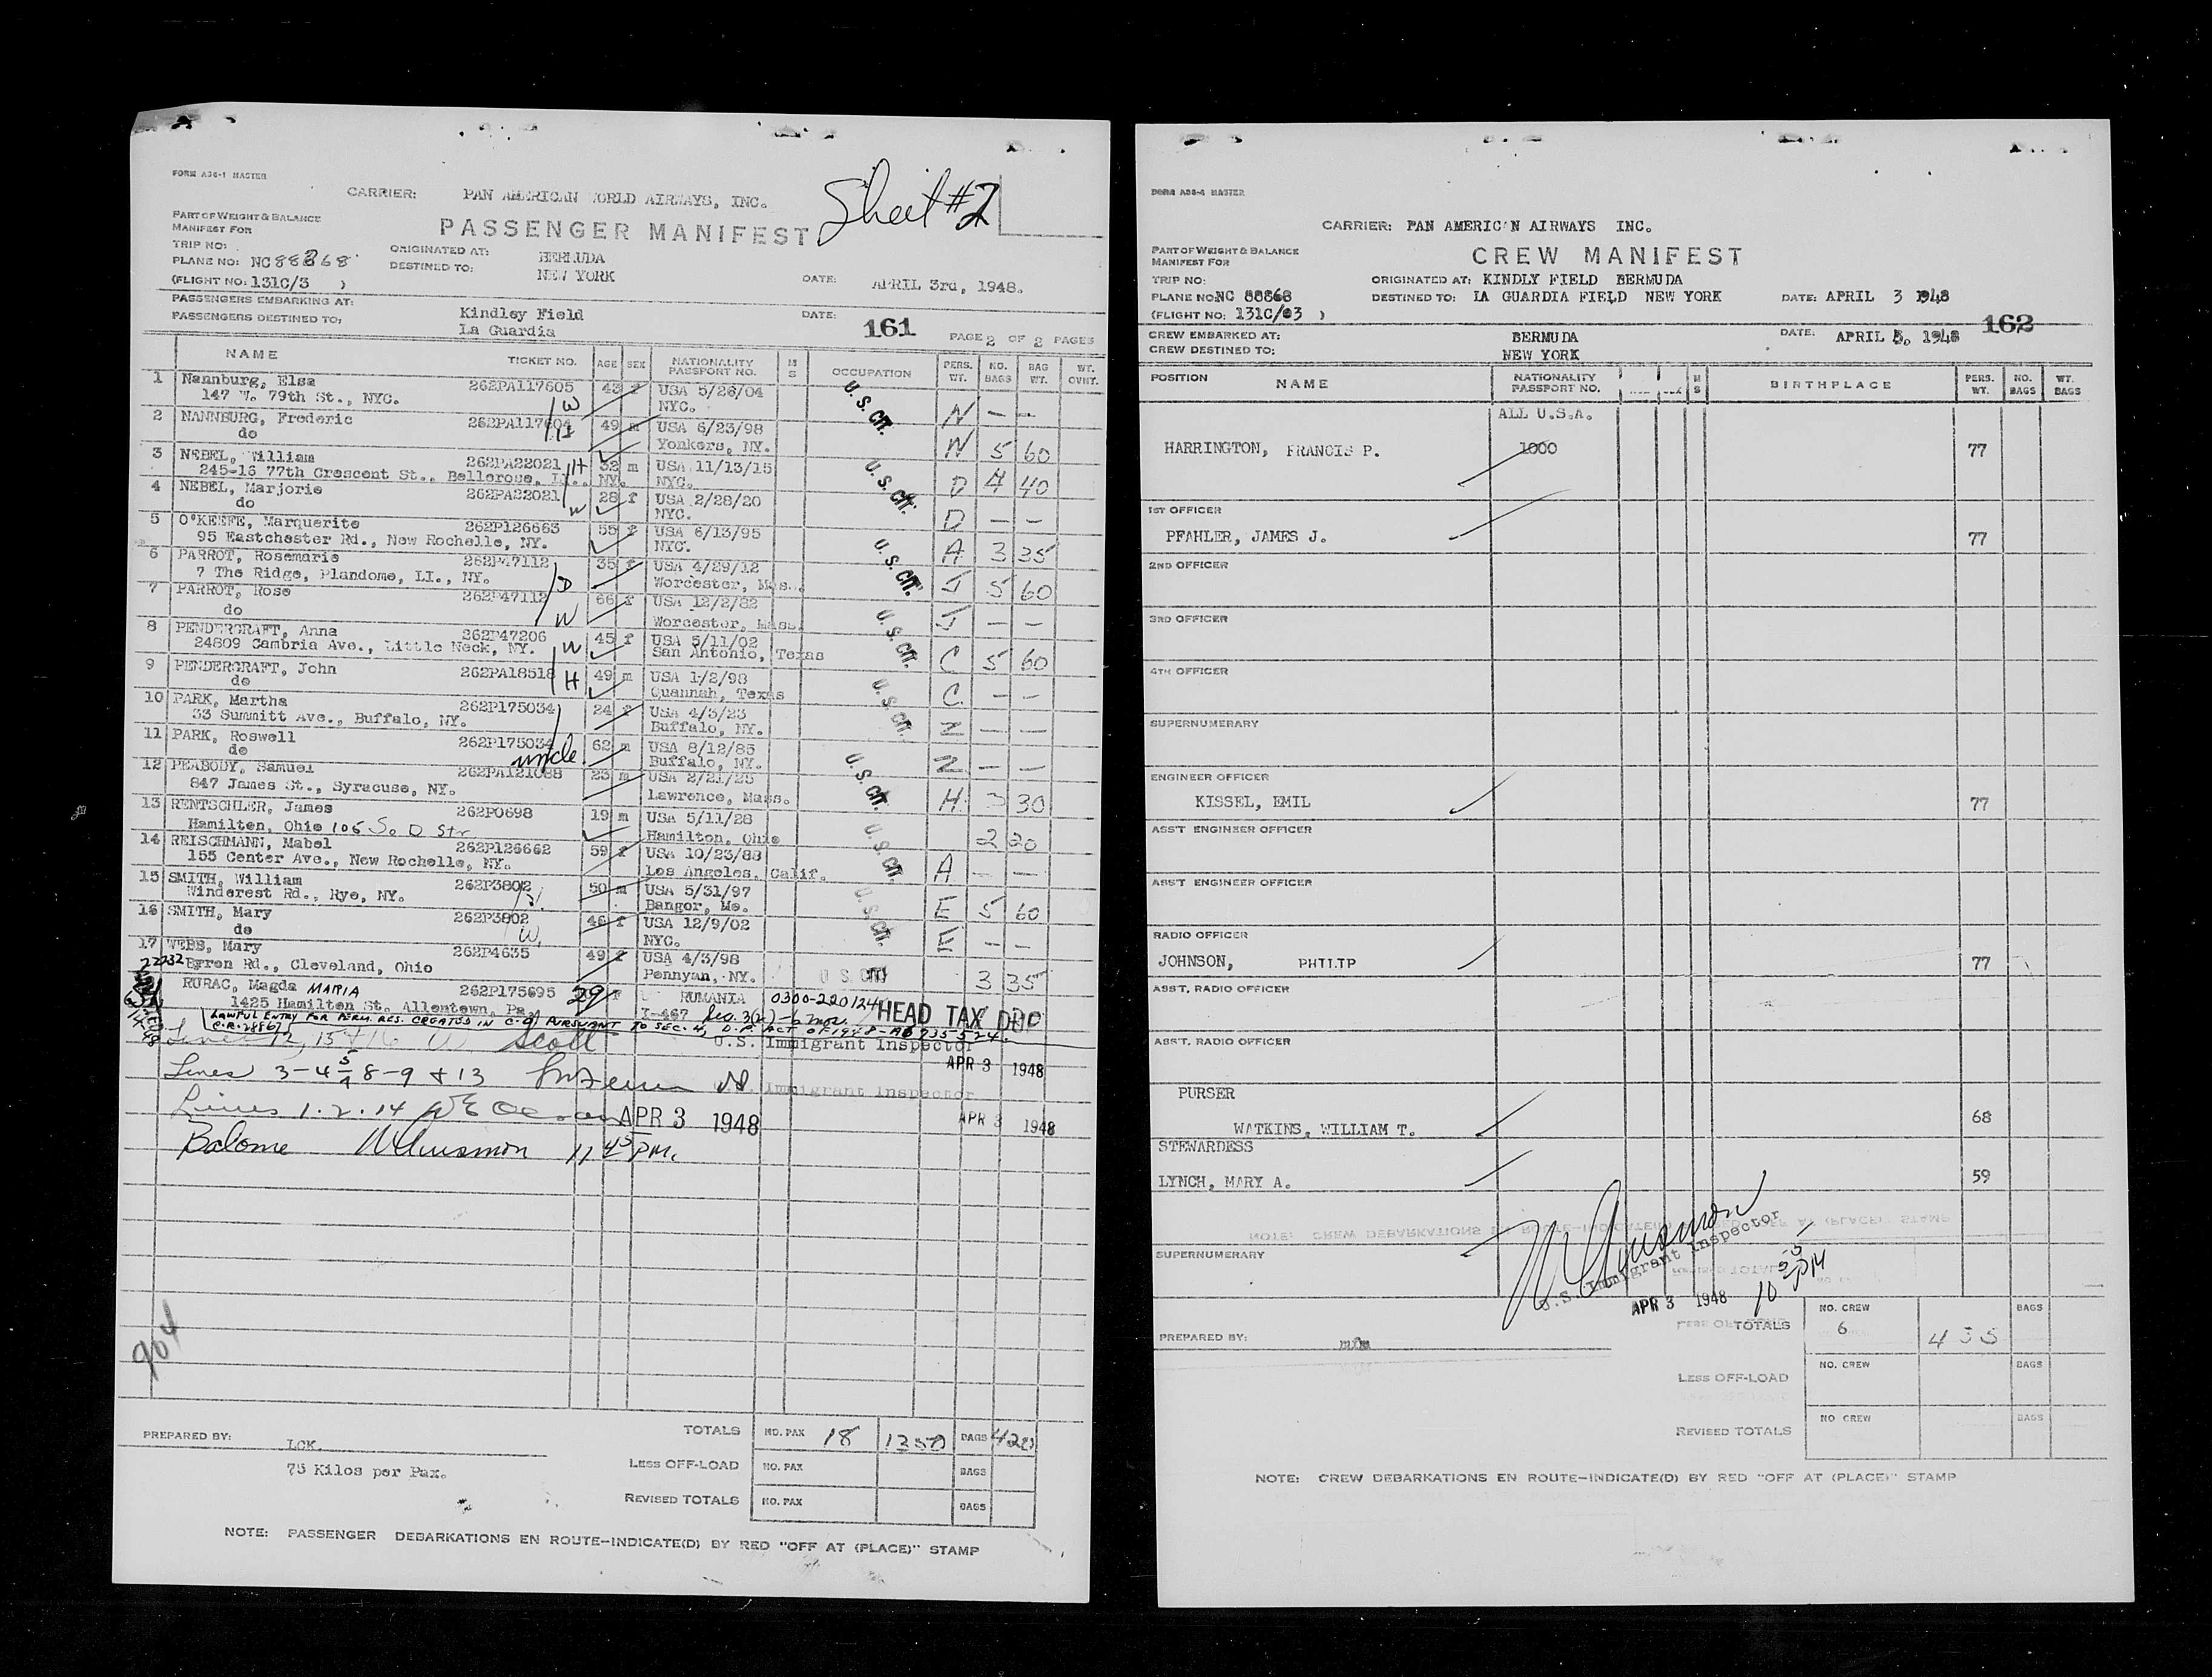 FORM A36-1 MASTER
CARRIER: PAN AMERICAN WORLD AIRWAYS, INC.
Sheet #2
PART OF WEIGHT & BALANCE
MANIFEST FOR
PASSENGER MANIFEST
TRIP NO:
ORIGINATED AT: BERMUDA
PLANE NO: NC88868
DESTINED TO: NEW YORK
DATE: APRIL 3rd, 1948.
(FLIGHT NO: 131C/3 )
PASSENGERS EMBARKING AT: Kindley Field
PASSENGERS DESTINED TO: La Guardia
DATE: 161 PAGE 2 OF 2 PAGES
NAME TICKET NO. AGE SEX NATIONALITY PASSPORT NO. M S OCCUPATION PERS. WT. NO. BAGS BAG WT. WT. OVWT.
1 Nannburg, Elsa 262PA117605 43 f USA 5/26/04 U.S. CIT.
147 W. 79th St., NYC. W NYC. N — —
2 NANNBURG, Frederic 262PA117604 49 m USA 6/23/98
do H Yonkers, NY. N 5 60
3 NEBEL, William 262PA22021 H 32 m USA 11/13/15 U.S. CIT.
245-16 77th Crescent St., Bellerose, LI., NY. NYC. D 4 40
4 NEBEL, Marjorie 262PA22021 28 f USA 2/28/20
do W NYC. D — —
5 O'KEEFE, Marquerite 262P126663 55 f USA 6/13/95 U.S. CIT.
95 Eastchester Rd., New Rochelle, NY. NYC. A 3 35
6 PARROT, Rosemarie 262P47112 35 f USA 4/29/12
7 The Ridge, Plandome, LI., NY. D Worcester, Mas.. J 5 60
7 PARROT, Rose 262P47112 66 f USA 12/2/82 U.S. CIT.
do W Worcester, Mass. J — —
8 PENDERGRAFT, Anna 262P47206 45 f USA 5/11/02
24809 Cambria Ave., Little Neck, NY. W San Antonio, Texas C 5 60
9 PENDERGRAFT, John 262PA18518 H 49 m USA 1/2/98 U.S. CIT.
do Quannah, Texas C — —
10 PARK, Martha 262P175034 24 f USA 4/3/23
33 Summitt Ave., Buffalo, NY. Buffalo, NY. Z — —
11 PARK, Roswell 262P175034 62 m USA 8/12/85
do uncle Buffalo, NY. Z — —
12 PEABODY, Samuel 262PA121088 23 m USA 2/21/25 U.S. CIT.
847 James St., Syracuse, NY. Lawrence, Mass. H 30
13 RENTSCHLER, James 262P0698 19 m USA 5/11/28
Hamilton, Ohio 105 So. D Str Hamilton, Ohio 2 20
14 REISCHMANN, Mabel 262P126662 59 f USA 10/23/88 U.S. CIT.
155 Center Ave., New Rochelle, NY. Los Angeles, Calif. A — —
15 SMITH, William 262P3802 50 m USA 5/31/97
Windcrest Rd., Rye, NY. Bangor, Me. E 5 60
16 SMITH, Mary 262P3802 46 f USA 12/9/02 U.S. CIT.
do W NYC. E — —
17 WEBB, Mary 262P4635 49 f USA 4/3/98
22732 Byron Rd., Cleveland, Ohio Pennyan, NY. U S CIT 3 35
RURAC, Magda MARIA 262P175695 29 F RUMANIA 0300-220124 HEAD TAX
1425 Hamilton St. Allentown, Pa. I-467
LAWFUL ENTRY FOR PERM. RES. CREATED IN C.O. PURSUANT TO SEC. 4, D.P. ACT OF 1948
C.R. 28867
Scott U.S. Immigrant Inspector
APR 3 1948
Lines 3-4 8-9 + 13 Immigrant Inspector
Lines 1.2.14 APR 3 1948 APR 3 1948
11 45 PM.
904
TOTALS NO. PAX 18 1350 BAGS 420
PREPARED BY: LCK.
75 Kilos per Pax.
LESS OFF-LOAD NO. PAX BAGS
REVISED TOTALS NO. PAX BAGS
NOTE: PASSENGER DEBARKATIONS EN ROUTE-INDICATE(D) BY RED "OFF AT (PLACE)" STAMP
FORM A36-4 MASTER
CARRIER: PAN AMERICAN AIRWAYS INC.
PART OF WEIGHT & BALANCE
MANIFEST FOR
CREW MANIFEST
TRIP NO:
ORIGINATED AT: KINDLY FIELD BERMUDA
PLANE NO: NC 88868
DESTINED TO: LA GUARDIA FIELD NEW YORK
DATE: APRIL 3 1948
(FLIGHT NO: 131C/03 )
162
CREW EMBARKED AT: BERMUDA DATE: APRIL 3, 1948
CREW DESTINED TO: NEW YORK
POSITION NAME NATIONALITY PASSPORT NO. M S BIRTHPLACE PERS. WT. NO. BAGS WT. BAGS
ALL U.S.A.
HARRINGTON, FRANCIS P. 1000 77
1ST OFFICER
PFAHLER, JAMES J. 77
2ND OFFICER
3RD OFFICER
4TH OFFICER
SUPERNUMERARY
ENGINEER OFFICER
KISSEL, EMIL 77
ASST ENGINEER OFFICER
ASST ENGINEER OFFICER
RADIO OFFICER
JOHNSON, PHILIP 77
ASST. RADIO OFFICER
ASST. RADIO OFFICER
PURSER
WATKINS, WILLIAM T. 68
STEWARDESS
LYNCH, MARY A. 59
SUPERNUMERARY
U.S. Immigrant Inspector
APR 3 1948
TOTALS NO. CREW 6 435 BAGS
PREPARED BY: mfm
LESS OFF-LOAD NO. CREW BAGS
REVISED TOTALS NO CREW BAGS
NOTE: CREW DEBARKATIONS EN ROUTE-INDICATE(D) BY RED "OFF AT (PLACE)" STAMP